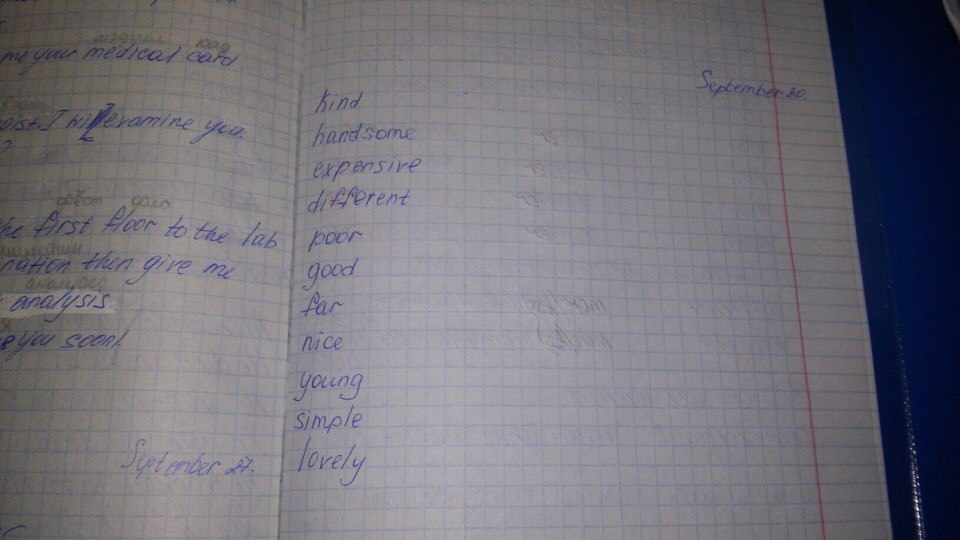 me your medical card
I will examine you.
?
the first floor to the lab
nation then give me
analysis
you soon!
September 27.
September 30.
kind
handsome
expensive
different
poor
good
far
nice
young
simple
lovely